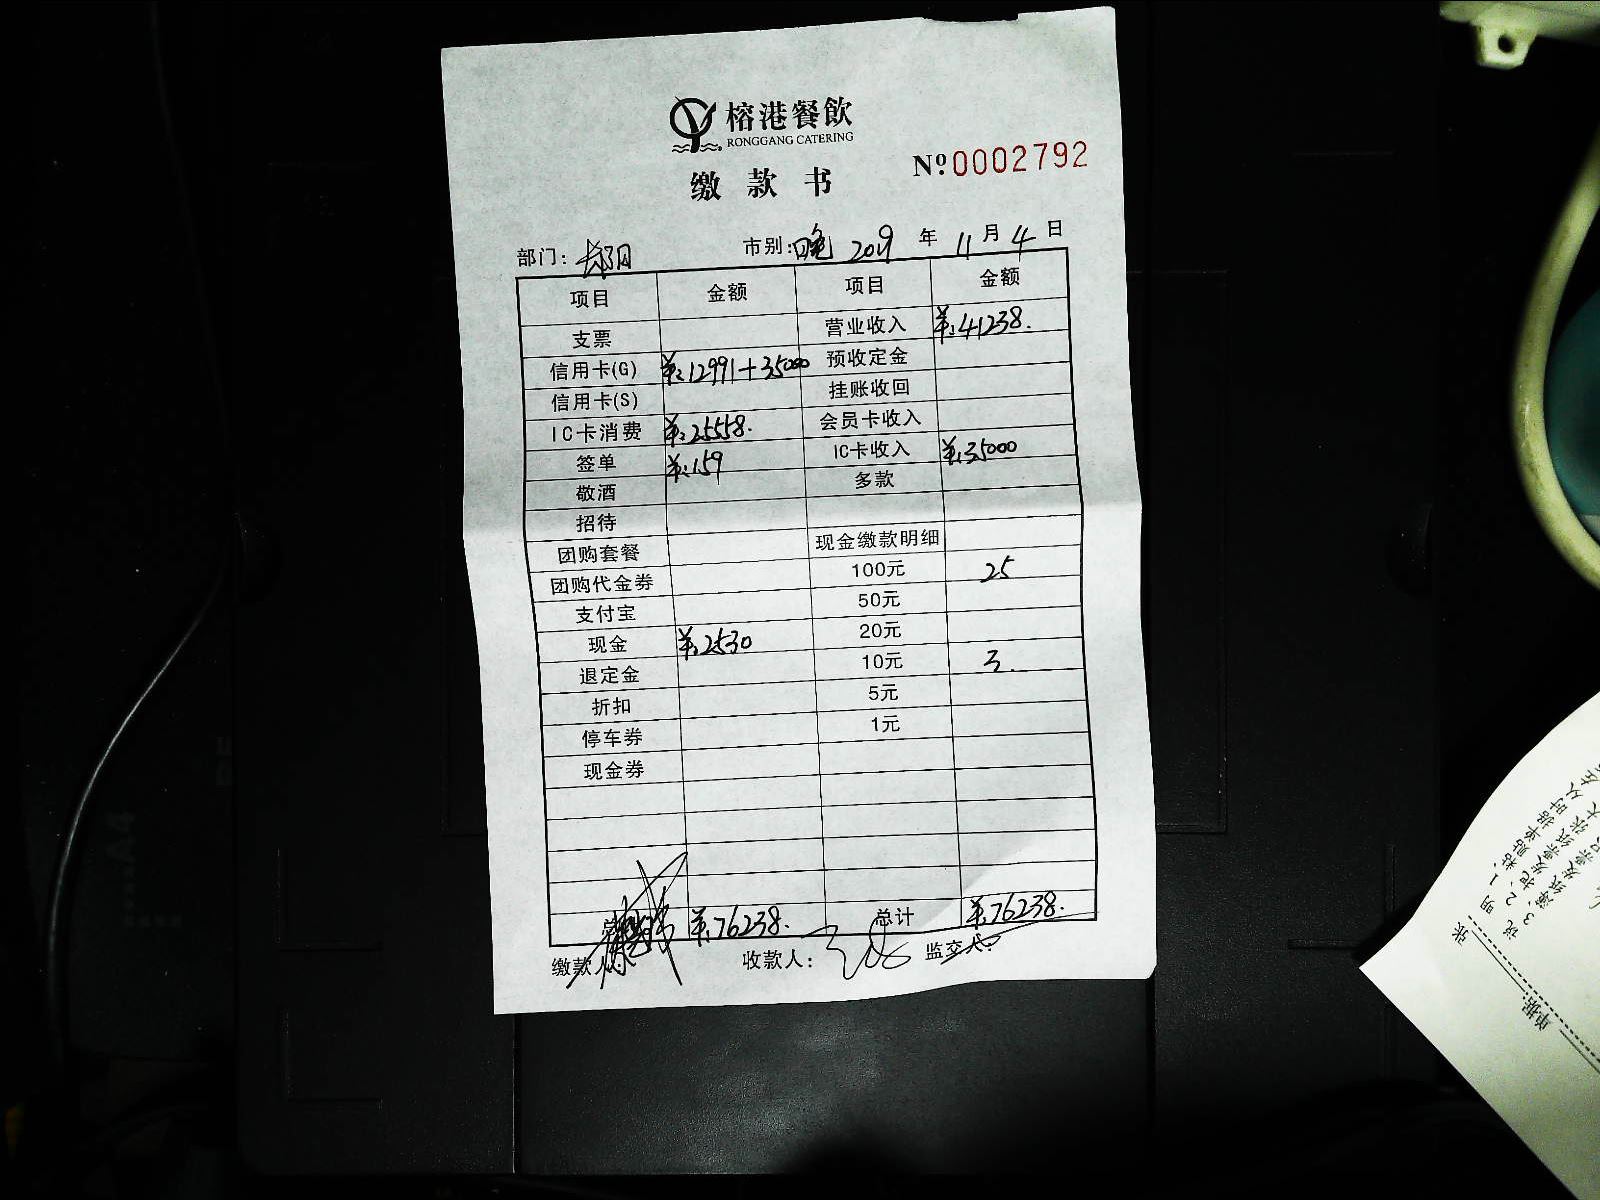 榕港餐飲
RONGGANG CATERING
缴款书
Nº:0002792
部门：郧阳 市别：晚 2019年11月4日
项目 金额 项目 金额
支票 营业收入 ¥:41238.
信用卡(G) ¥:12991+35000 预收定金
信用卡(S) 挂账收回
IC卡消费 ¥:25558. 会员卡收入
签单 ¥:159 IC卡收入 ¥:35000
敬酒 多款
招待
团购套餐 现金缴款明细
团购代金券 100元 25
支付宝 50元
现金 ¥:2530 20元
退定金 10元 3.
折扣 5元
停车券 1元
现金券
¥:76238. 总计 ¥:76238.
缴款人 收款人： 监交人：
说明
1、粘贴单据
2、把发票
单据：
张